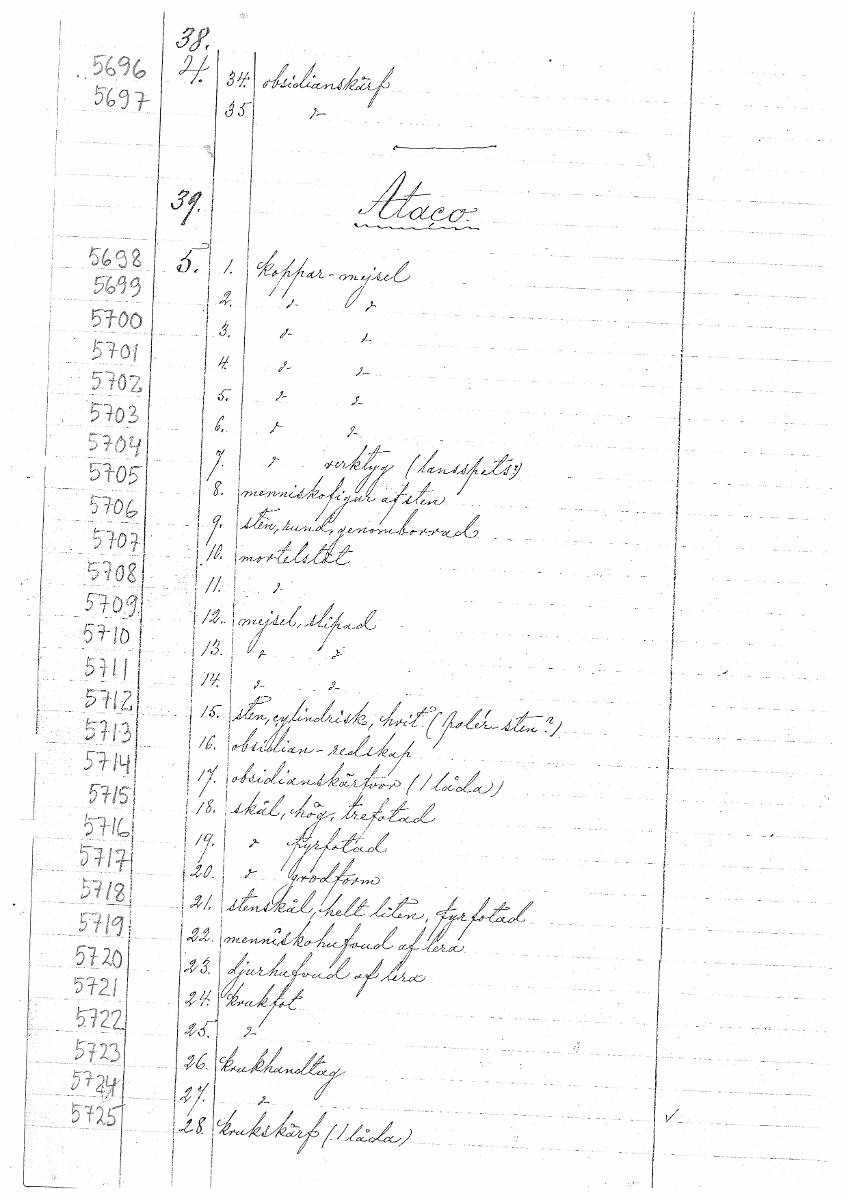 38.
5696 4. 34. obsidianskärf
5697 35 "
39. Ataco.
5698 5. 1. koppar-mejsel
5699 2. " "
5700 3. " "
5701 4. " "
5702 5. " "
5703 6. " "
5704 7. " verktyg (lansspets?)
5705 8. menniskofigur af sten
5706 9. sten, rund, genomborrad
5707 10. mortelstöt
5708 11. "
5709 12. mejsel, slipad
5710 13. " "
5711 14. " "
5712 15. sten, cylindrisk, hvit (polér-sten?)
5713 16. obsidian-redskap
5714 17. obsidianskärfvor (1 låda)
5715 18. skål, hög, trefotad
5716 19. " fyrfotad
5717 20. " grodform
5718 21. stenskål, helt liten, fyrfotad
5719 22. menniskohufvud af lera
5720 23. djurhufvud af lera
5721 24. krukfot
5722 25. "
5723 26. krukhandtag
5724 27. "
5725 28. krukskärf (1 låda) ✓